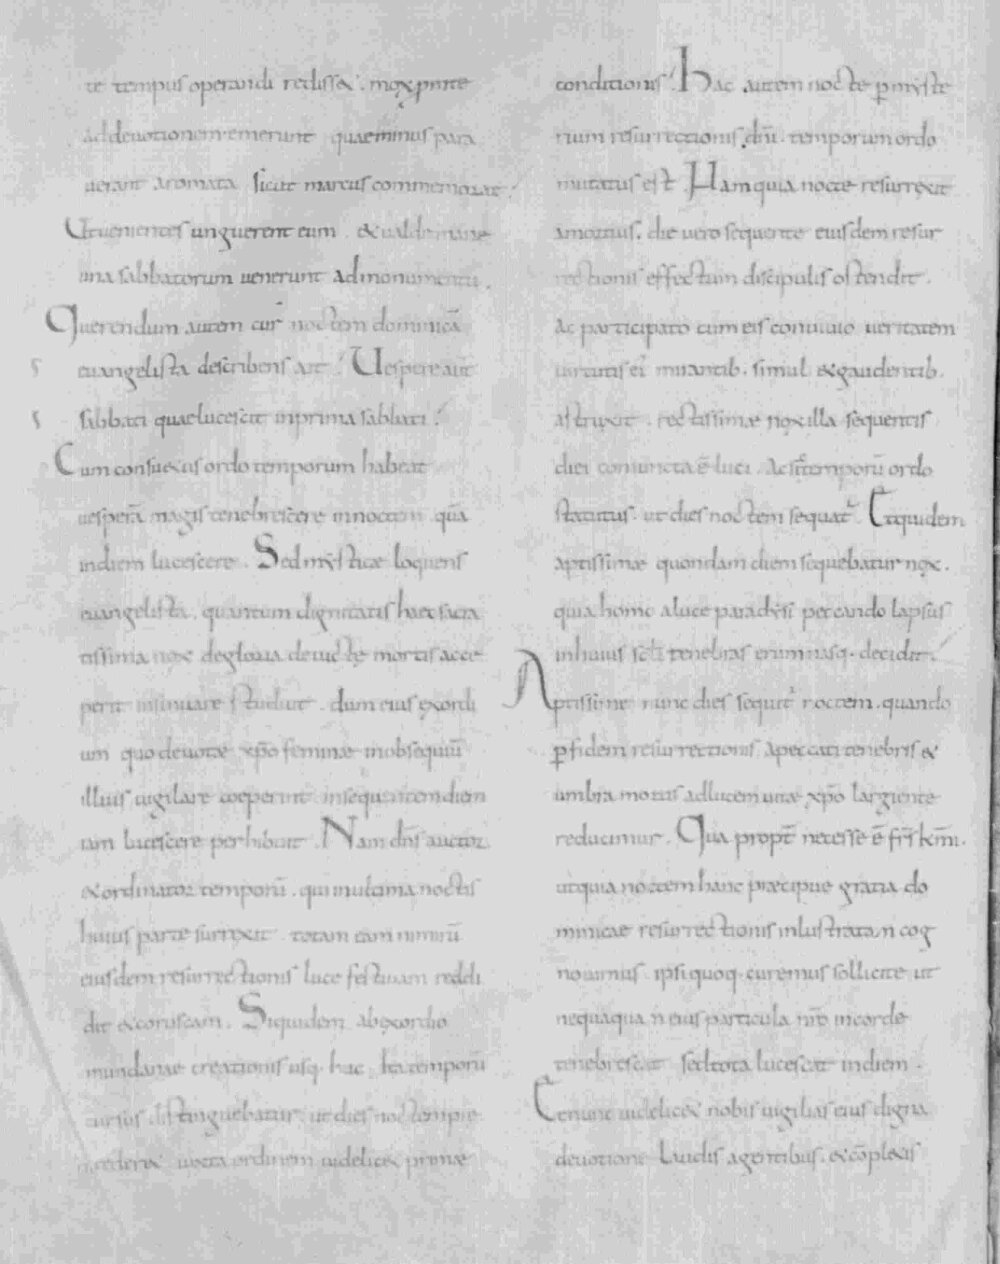 te tempus operandi redisset. mox prͥtę
ad deuotionem emerunt quae minus para
uerant aromata sicut marcus commemorat.
Ut uenientes unguerent eum. & ualde mane
una sabbatorum uenerunt ad monumentū.
Querendum autem cur noctem dominicā
euangelista describens ait. Uespere autē
sabbati quae lucescit in prima sabbati.
Cum consuetus ordo temporum habeat
uesperā magis tenebrescere in noctem. quā
in diem lucescere. Sed mystice loquens
euangelista. quantum dignitatis haec sacra
tissima nox de gloria deuicte mortis acce
perit insinuare studuit. dum eius exordi
um quo deuotae xp̄o feminae in obsequiū
illius uigilare coeperunt in sequentem diem
iam lucescere perhibuit. Nam dn̄s auctor
& ordinator temporū. qui in ultima noctis
huius parte surrexit. totam eam nimirū
eiusdem resurrectionis luce festiuam reddi
dit & coruscam. Siquidem ab exordio
mundanae creationis usq· hac ita temporū
cursus distinguebatur. ut dies noctem pre
cederet iuxta ordinem uidelicet primae
conditionis. Hac autem nocte ꝑ myste
rium resurrectionis dn̄i. temporum ordo
mutatus est. Nam quia nocte resurrexit
a mortuis. die uero sequente eiusdem resur
rectionis effectum discipulis ostendit.
Ac participato cum eis conuiuio ueritatem
uirtutis ei mirantib. simul & gaudentib.
astruxit. rectissimae nox illa sequentis
diei coniuncta ē luci. Ac sic temporū ordo
statutus. ut dies noctem sequat᷑. Et quidem
aptissimae quondam diem sequebatur nox.
quia homo a luce paradysi peccando lapsus
in huius scl̄i tenebras erumnasq· decidit.
Aptissime nunc dies sequit᷑ noctem. quando
ꝑ fidem resurrectionis a peccati tenebris &
umbra mortis ad lucem uitae xp̄o largiente
reducimur. Qua propt̄ necesse ē fr̄s km̄i.
ut quia noctem hanc praecipue gratia do
minicae resurrectionis inlustratam cog
nouimus. ipsi quoq· curemus sollicite ut
nequaqua n eius particula nr̄o in corde
tenebrescat sed tota lucescat in diem.
Et nunc uidelicet nobis uigilias eius digna
deuotione laudis agentibus. & cōpletis